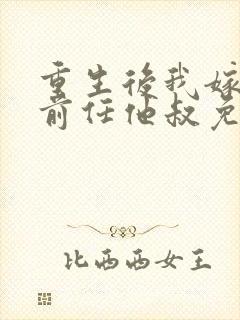 重生後我嫁
前任他叔免
比西西女王